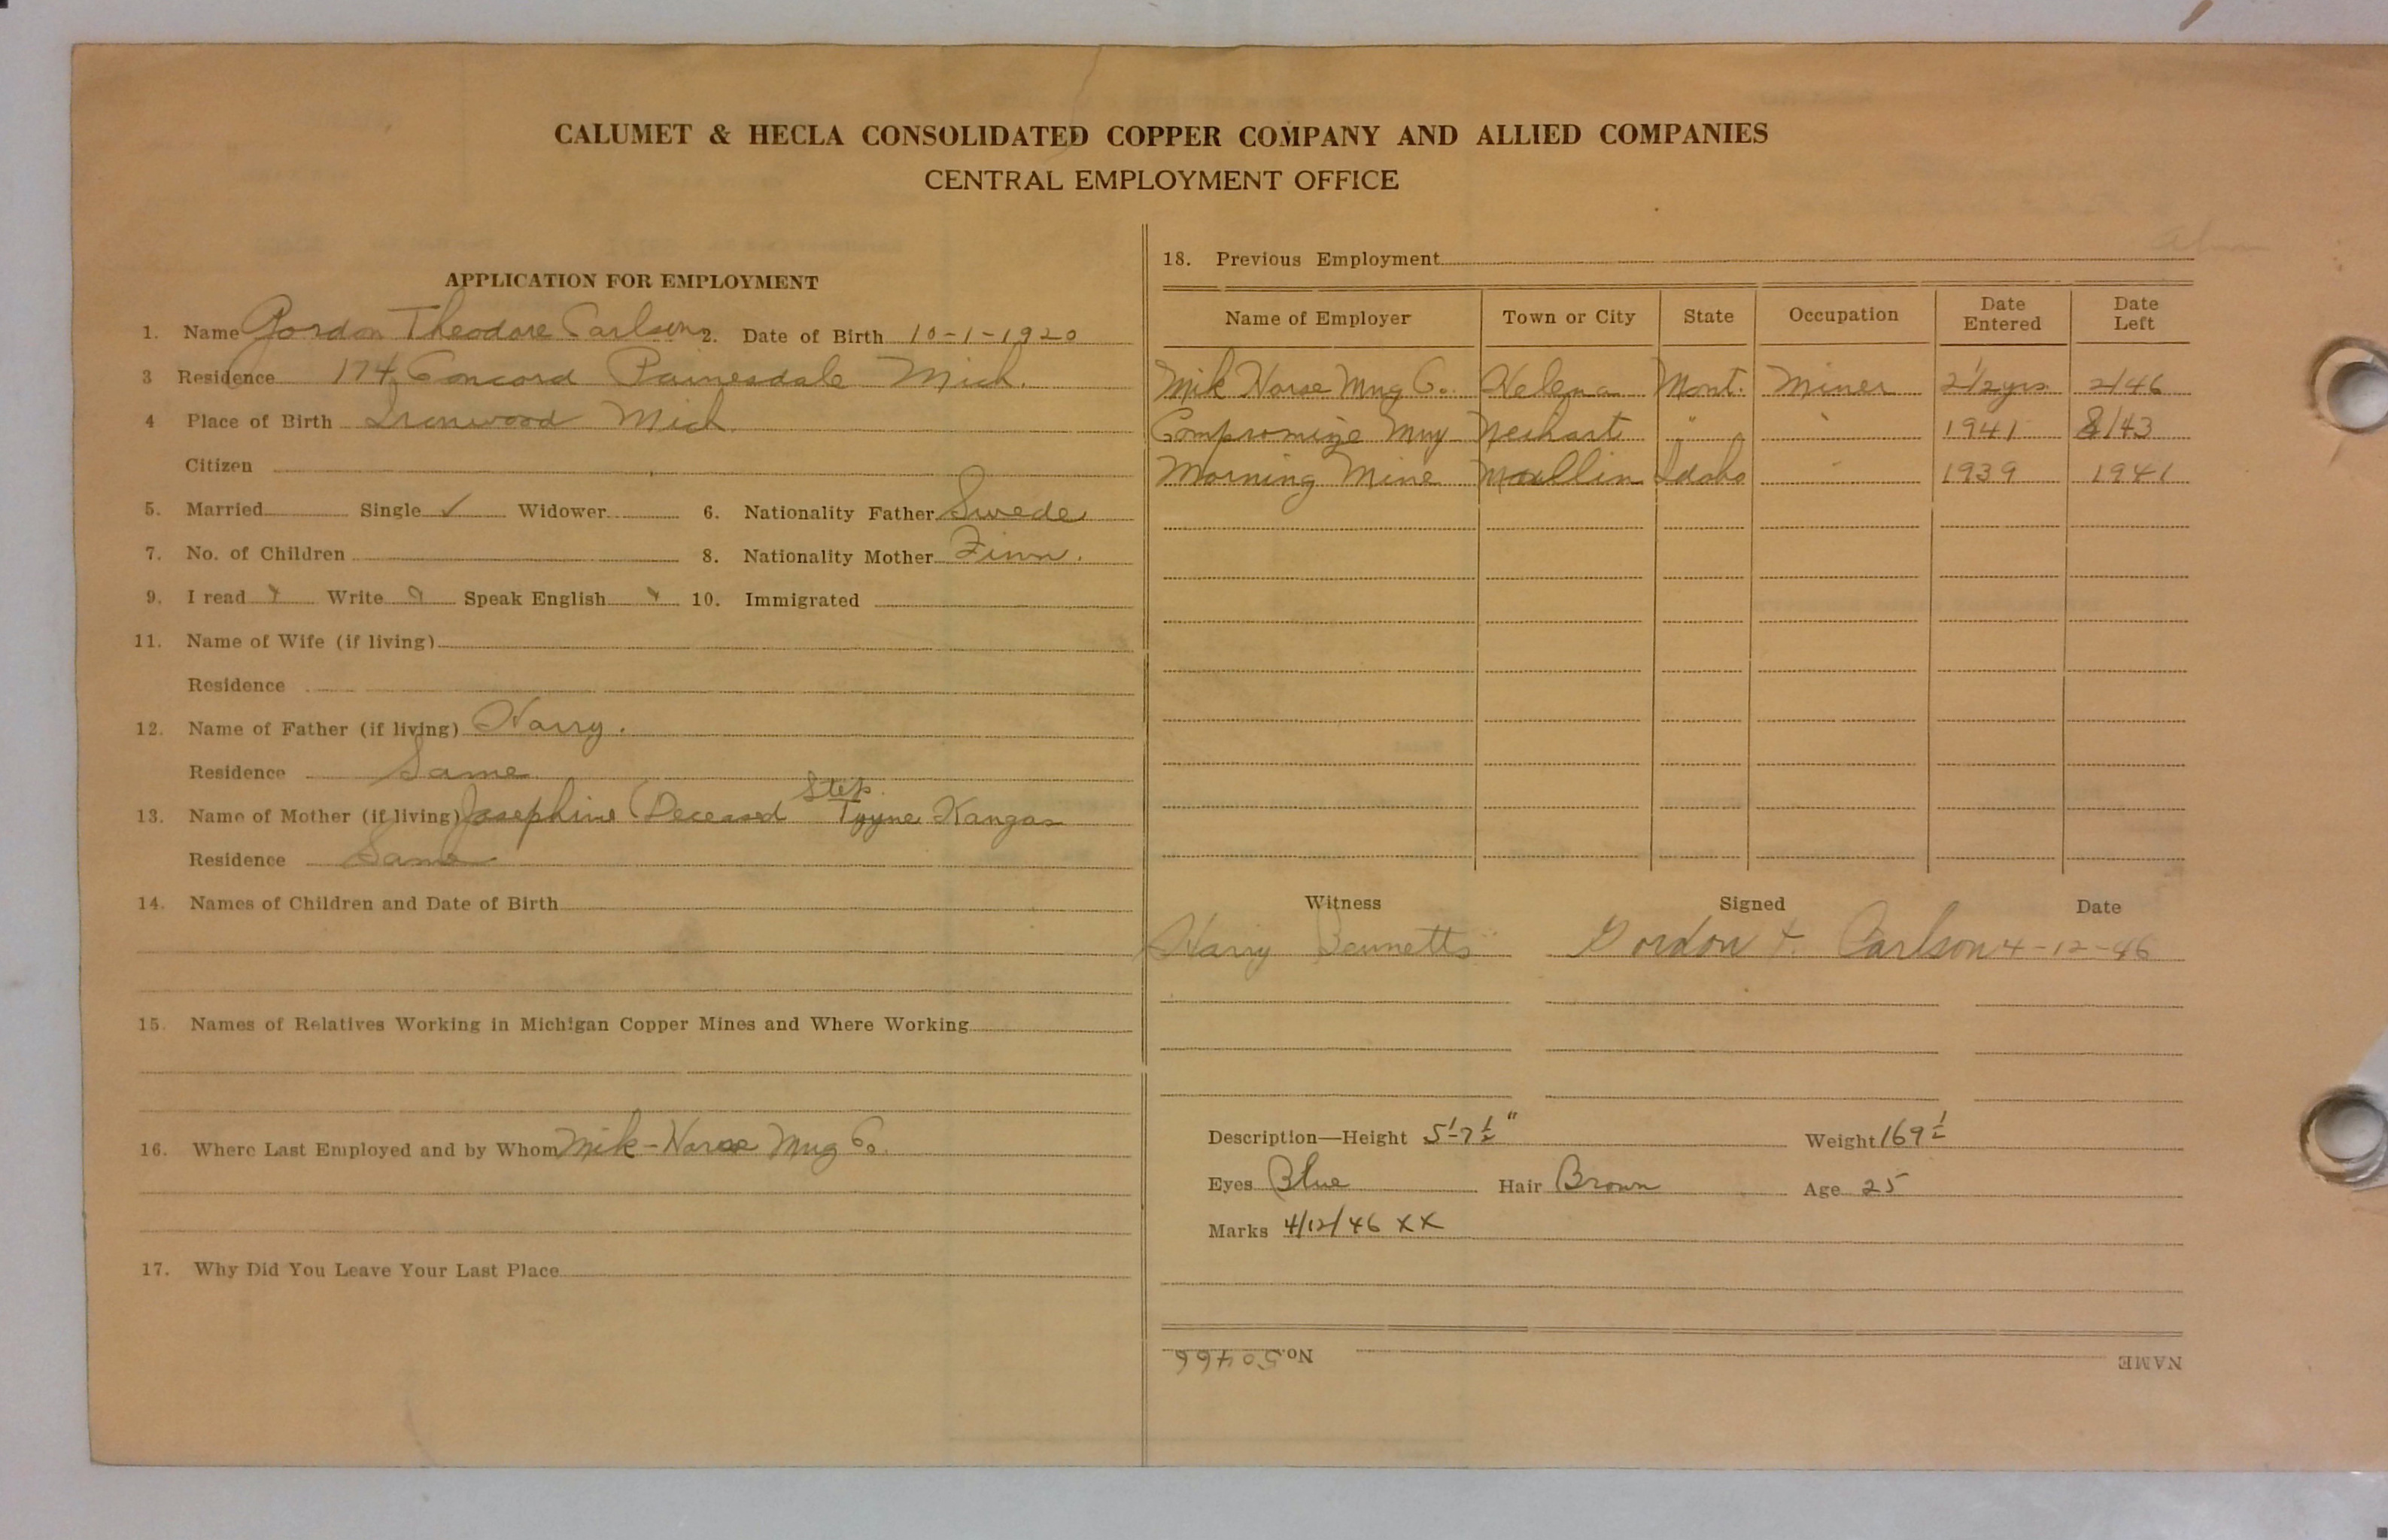 CALUMET & HECLA CONSOLIDATED COPPER COMPANY AND ALLIED COMPANIES
CENTRAL EMPLOYMENT OFFICE
APPLICATION FOR EMPLOYMENT
1. Name Gordon Theodore Carlson 2. Date of Birth 10-1-1920
3 Residence 174 Concord Painesdale Mich.
4 Place of Birth Ironwood Mich
Citizen
5. Married Single ✓ Widower 6. Nationality Father Swede
7. No. of Children 8. Nationality Mother Finn.
9. I read Write Speak English 10. Immigrated
11. Name of Wife (if living)
Residence
12. Name of Father (if living) Harry.
Residence Same
Step
13. Name of Mother (if living) Josephine Deceased Tyyne Kangas
Residence Same
14. Names of Children and Date of Birth
15. Names of Relatives Working in Michigan Copper Mines and Where Working
16. Where Last Employed and by Whom Mik-Horse Mng Co.
17. Why Did You Leave Your Last Place
18. Previous Employment
Name of Employer Town or City State Occupation Date Entered Date Left
Mik Horse Mng Co. Helena Mont. Miner 2 1/2 yrs 2/46
Compromize Mng Neihart " " 1941 8/43
Morning Mine Mullin Idaho " 1939 1941
Witness Signed Date
Harry Bennetts Gordon T. Carlson 4-12-46
Description—Height 5'-7 1/2" Weight 169 1/2
Eyes Blue Hair Brown Age 25
Marks 4/12/46 XX
NAME No. 50466